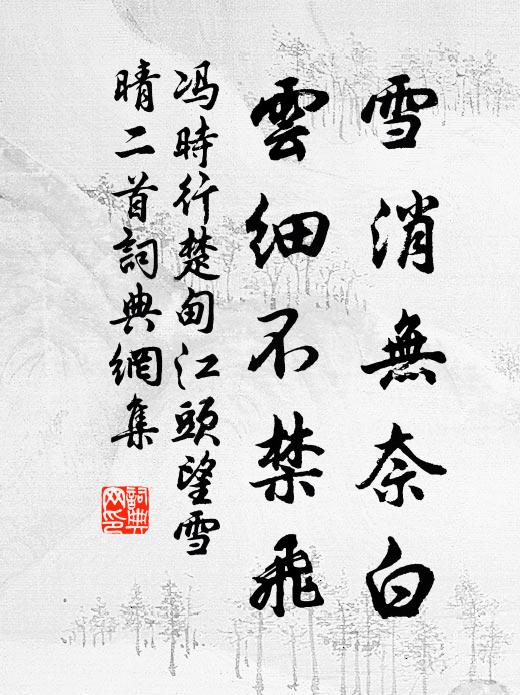 雪消無奈白
雲細不禁飛
冯時行楚甸江頭望雪
晴二首詞典網集
詞典
网印